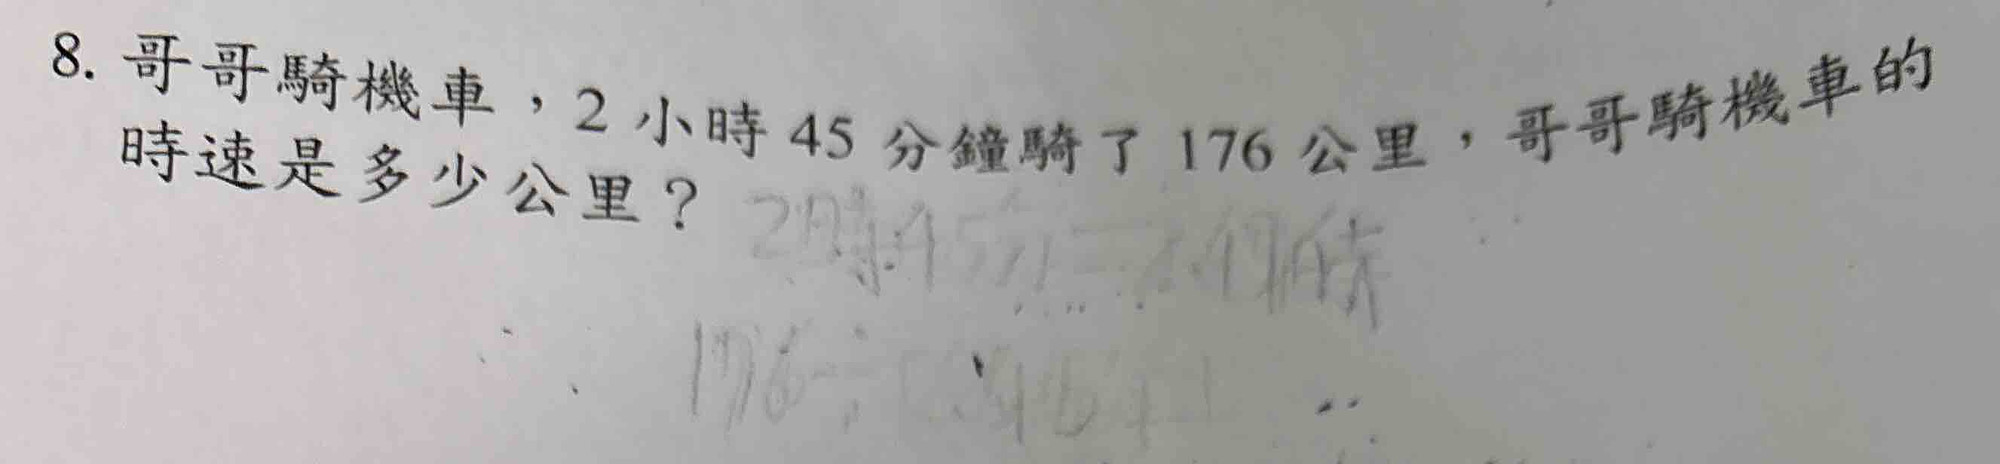 8. 哥哥騎機車，2 小時 45 分鐘騎了 176 公里，哥哥騎機車的
時速是多少公里？
2時45分=
176÷